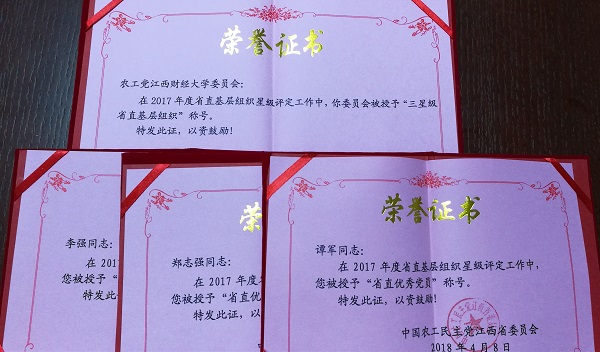 荣誉证书
农工党江西财经大学委员会：
在2017年度省直基层组织星级评定工作中，你委员会被授予“三星级
省直基层组织”称号。
特发此证，以资鼓励！
李强同志：
在2
您被授予“
特发
郑志强同志：
在2017年度
您被授予“省直
特发此证，
荣誉证书
谭军同志：
在2017年度省直基层组织星级评定工作中，
您被授予“省直优秀党员”称号。
特发此证，以资鼓励！
中国农工民主党江西省委员会
2018年4月8日